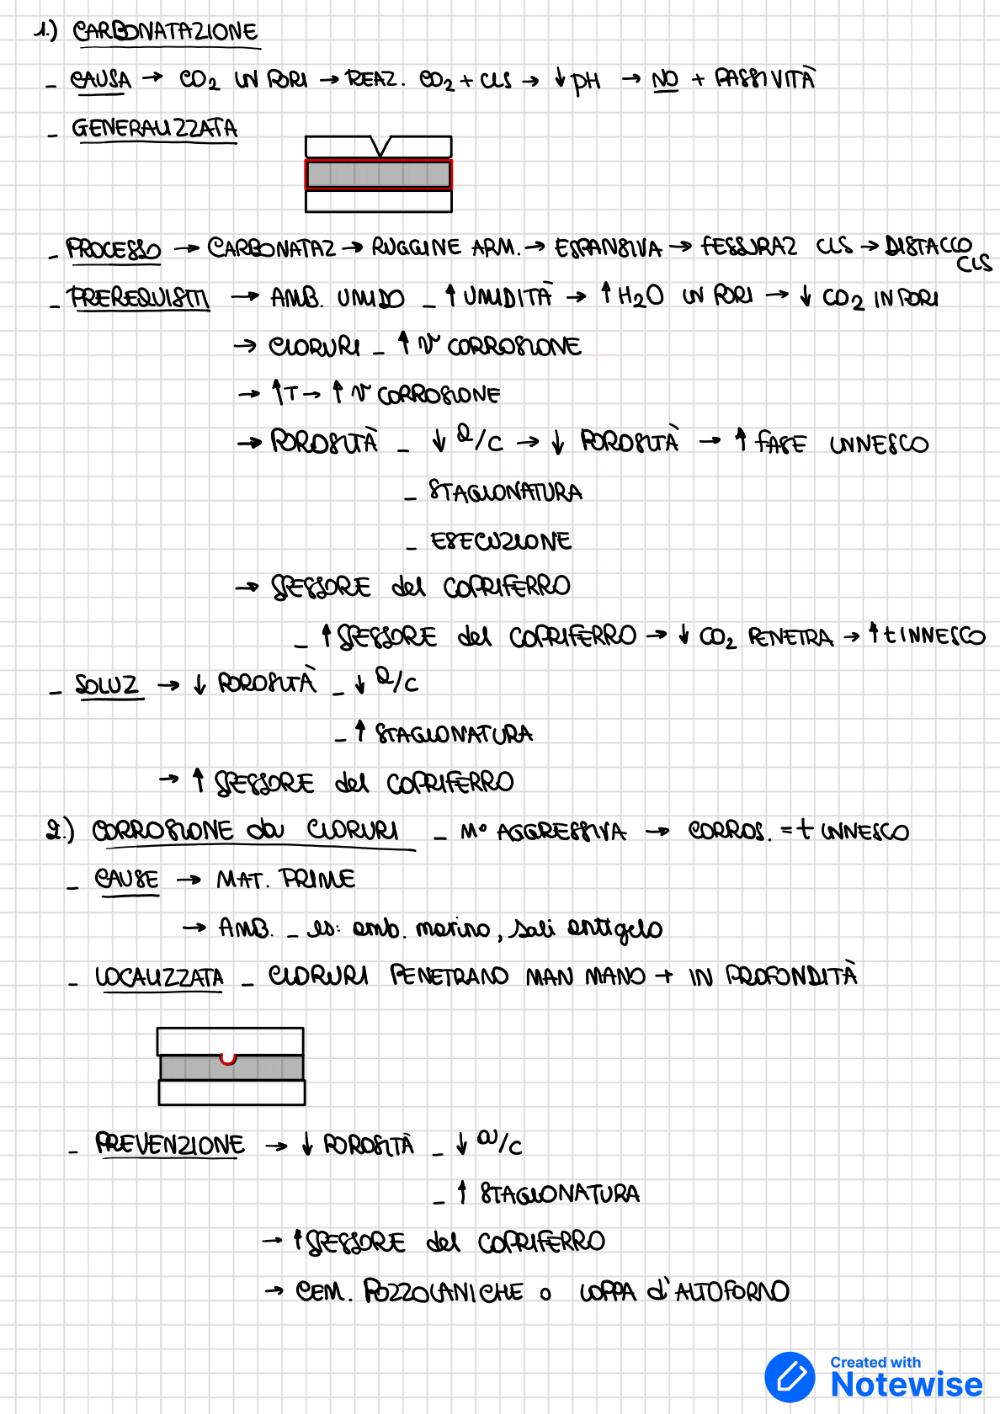 1.) CARBONATAZIONE
- CAUSA → CO2 IN PORI → REAZ. CO2 + CLS → ↓ pH → NO + PASSIVITÀ
- GENERALIZZATA
- PROCESSO → CARBONATAZ → RUGGINE ARM. → ESPANSIVA → FESSURAZ CLS → DISTACCO CLS
- PREREQUISITI → AMB. UMIDO - ↑ UMIDITÀ → ↑ H2O IN PORI → ↓ CO2 IN PORI
→ CLORURI - ↑ V CORROSIONE
→ ↑T → ↑ V CORROSIONE
→ POROSITÀ - ↓ a/c → ↓ POROSITÀ → ↑ FASE INNESCO
- STAGIONATURA
- ESECUZIONE
→ SPESSORE del COPRIFERRO
- ↑ SPESSORE del COPRIFERRO → ↓ CO2 PENETRA → ↑ t INNESCO
- SOLUZ → ↓ POROSITÀ - ↓ a/c
- ↑ STAGIONATURA
→ ↑ SPESSORE del COPRIFERRO
2.) CORROSIONE da CLORURI - M° AGGRESSIVA → CORROS. = t INNESCO
- CAUSE → MAT. PRIME
→ AMB. - es: amb. marino, sali antigelo
- LOCALIZZATA - CLORURI PENETRANO MAN MANO + IN PROFONDITÀ
- PREVENZIONE → ↓ POROSITÀ - ↓ a/c
- ↑ STAGIONATURA
→ ↑ SPESSORE del COPRIFERRO
→ CEM. POZZOLANICHE o LOPPA d'ALTOFORNO
Created with
Notewise